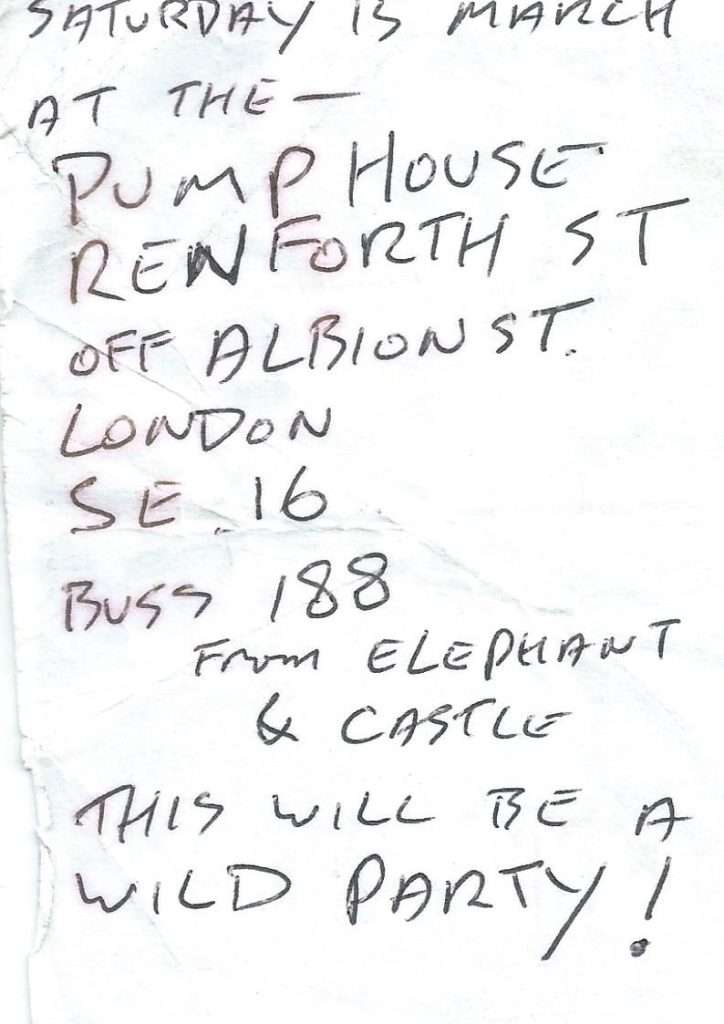 SATURDAY 15 MARCH
AT THE —
PUMP HOUSE
RENFORTH ST
OFF ALBION ST.
LONDON
SE. 16
BUSS 188
FROM ELEPHANT
& CASTLE
THIS WILL BE A
WILD PARTY!